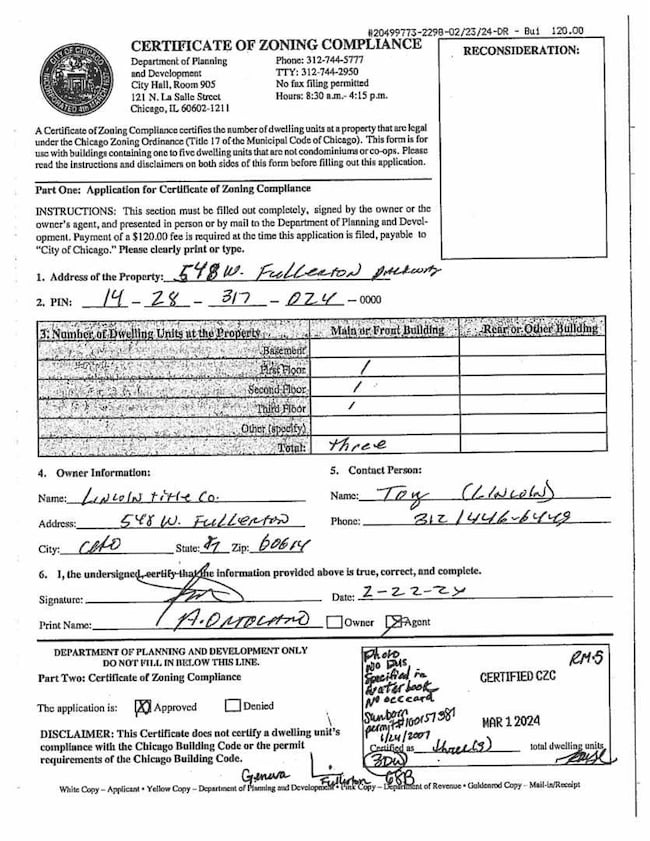 #20499773-2298-02/23/24-DR - Bui 120.00
CITY OF CHICAGO
INCORPORATED 4th MARCH
CERTIFICATE OF ZONING COMPLIANCE
Department of Planning
and Development
City Hall, Room 905
121 N. La Salle Street
Chicago, IL 60602-1211
Phone: 312-744-5777
TTY: 312-744-2950
No fax filing permitted
Hours: 8:30 a.m.- 4:15 p.m.
RECONSIDERATION:
A Certificate of Zoning Compliance certifies the number of dwelling units at a property that are legal
under the Chicago Zoning Ordinance (Title 17 of the Municipal Code of Chicago). This form is for
use with buildings containing one to five dwelling units that are not condominiums or co-ops. Please
read the instructions and disclaimers on both sides of this form before filling out this application.
Part One: Application for Certificate of Zoning Compliance
INSTRUCTIONS: This section must be filled out completely, signed by the owner or the
owner's agent, and presented in person or by mail to the Department of Planning and Devel-
opment. Payment of a $120.00 fee is required at the time this application is filed, payable to
"City of Chicago." Please clearly print or type.
1. Address of the Property: 548 W. Fullerton
2. PIN: 14 - 28 - 317 - 024 - 0000
3. Number of Dwelling Units at the Property Main or Front Building Rear or Other Building
Basement
First Floor 1
Second Floor 1
Third Floor 1
Other (specify)
Total: three
4. Owner Information:
Name: Lincoln Title Co.
Address: 548 W. Fullerton
City: State: Zip: 60614
5. Contact Person:
Name: Tony (Lincoln)
Phone: 312/446-6449
6. I, the undersigned, certify that the information provided above is true, correct, and complete.
Signature: Date: 2-22-24
Print Name: Owner Agent
DEPARTMENT OF PLANNING AND DEVELOPMENT ONLY
DO NOT FILL IN BELOW THIS LINE.
Part Two: Certificate of Zoning Compliance
The application is: X Approved Denied
DISCLAIMER: This Certificate does not certify a dwelling unit's
compliance with the Chicago Building Code or the permit
requirements of the Chicago Building Code.
Photo
No DUs
Specified in
water book
No occ card
Sunborn
permit#100157381
1/24/2007
RM-5
CERTIFIED CZC
MAR 1 2024
Certified as three(3) total dwelling units
3DU
Geneva
Fullerton
White Copy – Applicant • Yellow Copy – Department of Planning and Development • Pink Copy – Department of Revenue • Goldenrod Copy – Mail-in/Receipt